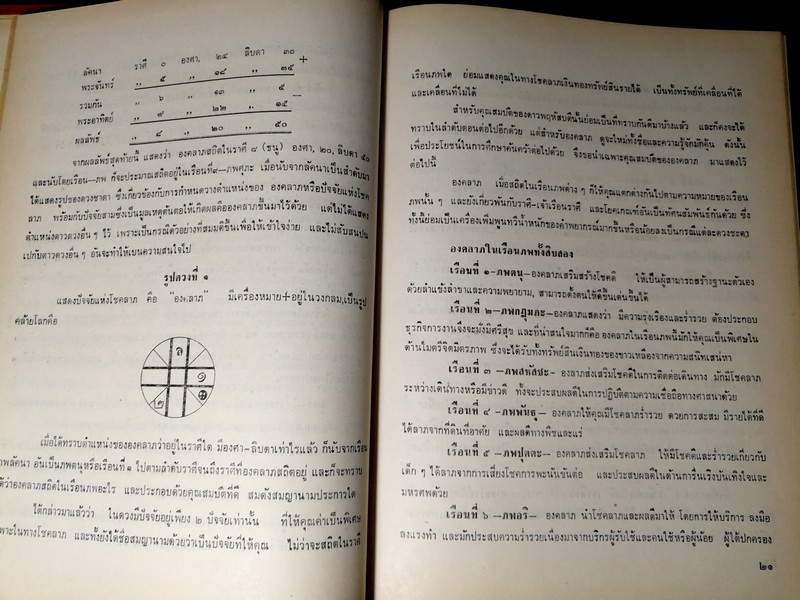 ลัคนา ราศี ๐ องศา, ๒๔ ลิบดา ๓๐
+
พระจันทร์ ,, ๕ ,, ๑๘ ,, ๓๕
รวมกัน ,, ๖ ,, ๑๓ ,, ๕
—
พระอาทิตย์ ,, ๙ ,, ๒๒ ,, ๑๕
ผลลัพธ์ ,, ๘ ,, ๒๐ ,, ๕๐
จากผลลัพธ์สุดท้ายนี้ แสดงว่า องคลาภสถิตในราศี ๘ (ธนู) องศา, ๒๐, ลิบดา ๕๐
และนับโดยเรือน—ภพ ก็จะประมาณสถิตอยู่ในเรือนที่๙—ภพศุภะ เมื่อนับจากลัคนาเป็นลำดับมา
ได้แสดงรูปของดวงชาตา ซึ่งเกี่ยวข้องกับการกำหนดวางตำแหน่งของ องคลาภหรือปัจจัยแห่งโชค
ลาภ พร้อมกับปัจจัยสามซึ่งเป็นมูลเหตุต้นตอให้เกิดผลคือองคลาภขึ้นมาไว้ด้วย แต่ไม่ได้แสดง
ตำแหน่งดาวดวงอื่น ๆ ไว้ เพราะเป็นกรณีตัวอย่างที่สมมติขึ้นเพื่อให้เข้าใจง่าย และไม่สับสนปน
เปกับดาวดวงอื่น ๆ อันจะทำให้เบนความสนใจไป
รูปดวงที่ ๑
แสดงปัจจัยแห่งโชคลาภ คือ "องคลาภ" มีเครื่องหมาย+อยู่ในวงกลม,เป็นรูป
คล้ายโลกคือ
ล
๑
๒
เมื่อได้ทราบตำแหน่งขององคลาภว่าอยู่ในราศีใด มีองศา-ลิบดาเท่าไรแล้ว ก็นับจากเรือน
ภพลัคนา อันเป็นภพตนุหรือเรือนที่ ๑ ไปตามลำดับราศีจนถึงราศีที่องคลาภสถิตอยู่ และก็จะทราบ
ได้ว่าองคลาภสถิตในเรือนภพอะไร และประกอบด้วยคุณสมบัติที่ดี สมดังสมญานามประการใด
ได้กล่าวมาแล้วว่า ในดวงมีปัจจัยอยู่เพียง ๒ ปัจจัยเท่านั้น ที่ให้คุณค่าเป็นพิเศษ
เพาะในทางโชคลาภ และทั้งยังได้ชื่อสมญานามด้วยว่าเป็นปัจจัยที่ให้คุณ ไม่ว่าจะสถิตในราศี
เรือนภพใด ย่อมแสดงคุณในทางโชคลาภเงินทองทรัพย์สินรายได้ เป็นทั้งทรัพย์ที่เคลื่อนที่ได้
และเคลื่อนที่ไม่ได้
สำหรับคุณสมบัติของดาวพฤหัสบดีนั้นย่อมเป็นที่ทราบกันดีมาบ้างแล้ว และก็คงจะได้
ทราบในลำดับตอนต่อไปอีกด้วย แต่สำหรับองคลาภ ดูจะใหม่ทั้งชื่อและความรู้จักมักคุ้น ดังนั้น
เพื่อประโยชน์ในการศึกษาค้นคว้าต่อไปด้วย จึงขอนำเฉพาะคุณสมบัติขององคลาภ มาแสดงไว้
ต่อไปนี้
องคลาภ เมื่อสถิตในเรือนภพต่าง ๆ ก็ให้คุณแตกต่างกันไปตามความหมายของเรือน
ภพนั้น ๆ และยังเกี่ยวพันกับราศี-เจ้าเรือนราศี และโยคเกณฑ์อันเป็นทัศนสัมพันธ์กันด้วย ซึ่ง
ทั้งนี้ย่อมเป็นเครื่องเพิ่มพูนทวีน้ำหนักของคำพยากรณ์มากขึ้นหรือน้อยลงเป็นกรณีแต่ละดวงชะตา
องคลาภในเรือนภพทั้งสิบสอง
เรือนที่ ๑-ภพตนุ-องคลาภเสริมสร้างโชคดี ให้เป็นผู้สามารถสร้างฐานะตัวเอง
ด้วยลำแข้งลำขาและความพยายาม, สามารถตั้งตนให้ดีขึ้นเด่นขึ้นได้
เรือนที่ ๒-ภพกฎุมภะ-องคลาภแสดงว่า มีความรุ่งเรืองและร่ำรวย ต้องประกอบ
ธุรกิจการงานจึงจะมั่งมีศรีสุข และที่น่าสนใจมากก็คือ องคลาภในเรือนภพนี้มักให้คุณเป็นพิเศษใน
ด้านไมตรีจิตมิตรภาพ ซึ่งจะได้รับทั้งทรัพย์สินเงินทองของขาวเหลืองจากความสนิทเสน่หา
เรือนที่ ๓ -ภพสหัสชะ- องลาภส่งเสริมโชคดีในการติดต่อเดินทาง มักมีโชคลาภ
ระหว่างเดินทางหรือมีข่าวดี ทั้งจะประสบผลดีในการปฏิบัติตามความเชื่อถือทางศาสนาด้วย
เรือนที่ ๔ -ภพพันธุ- องคลาภให้คุณมีโชคลาภร่ำรวย ด้วยการสะสม มีรายได้ที่ดี
ได้ลาภจากที่ดินที่อาศัย และผลดีทางพืชและแร่
เรือนที่ ๕ -ภพปุตตะ- องคลาภส่งเสริมโชคลาภ ให้มีโชคดีและร่ำรวยเกี่ยวกับ
เด็ก ๆ ได้ลาภจากการเสี่ยงโชคการพะนันขันต่อ และประสบผลดีในด้านการรื่นเริงบันเทิงใจและ
มหรศพด้วย
เรือนที่ ๖ -ภพอริ- องคลาภ นำโชคลาภและผลดีมาให้ โดยการให้บริการ ลงมือ
ลงแรงทำ และมักประสบความร่ำรวยเนื่องมาจากบริการผู้รับใช้และคนใช้หรือผู้น้อย ผู้ใต้ปกครอง
๒๑